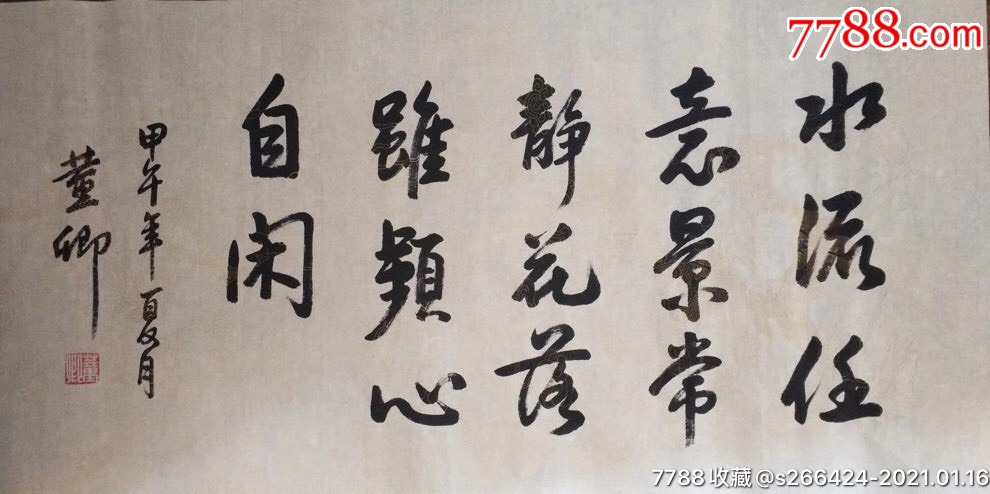 7788.com
水流任
意景常
静花落
雖頻心
自闲
甲午年夏月
董卿
董卿
7788收藏@s266424-2021.01.16